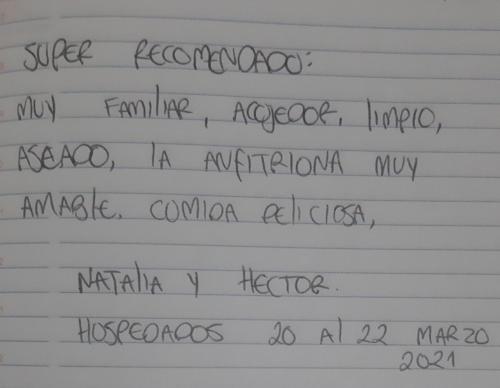 SUPER RECOMENDADO:
MUY FAMILIAR, ACOJEDOR, limpio,
ASEADO, lA ANFITRIONA MUY
AMABlE. COMIDA DEliCIOSA,
NATAlIA Y HECTOR.
HOSPEDADOS 20 Al 22 MARZO
2021